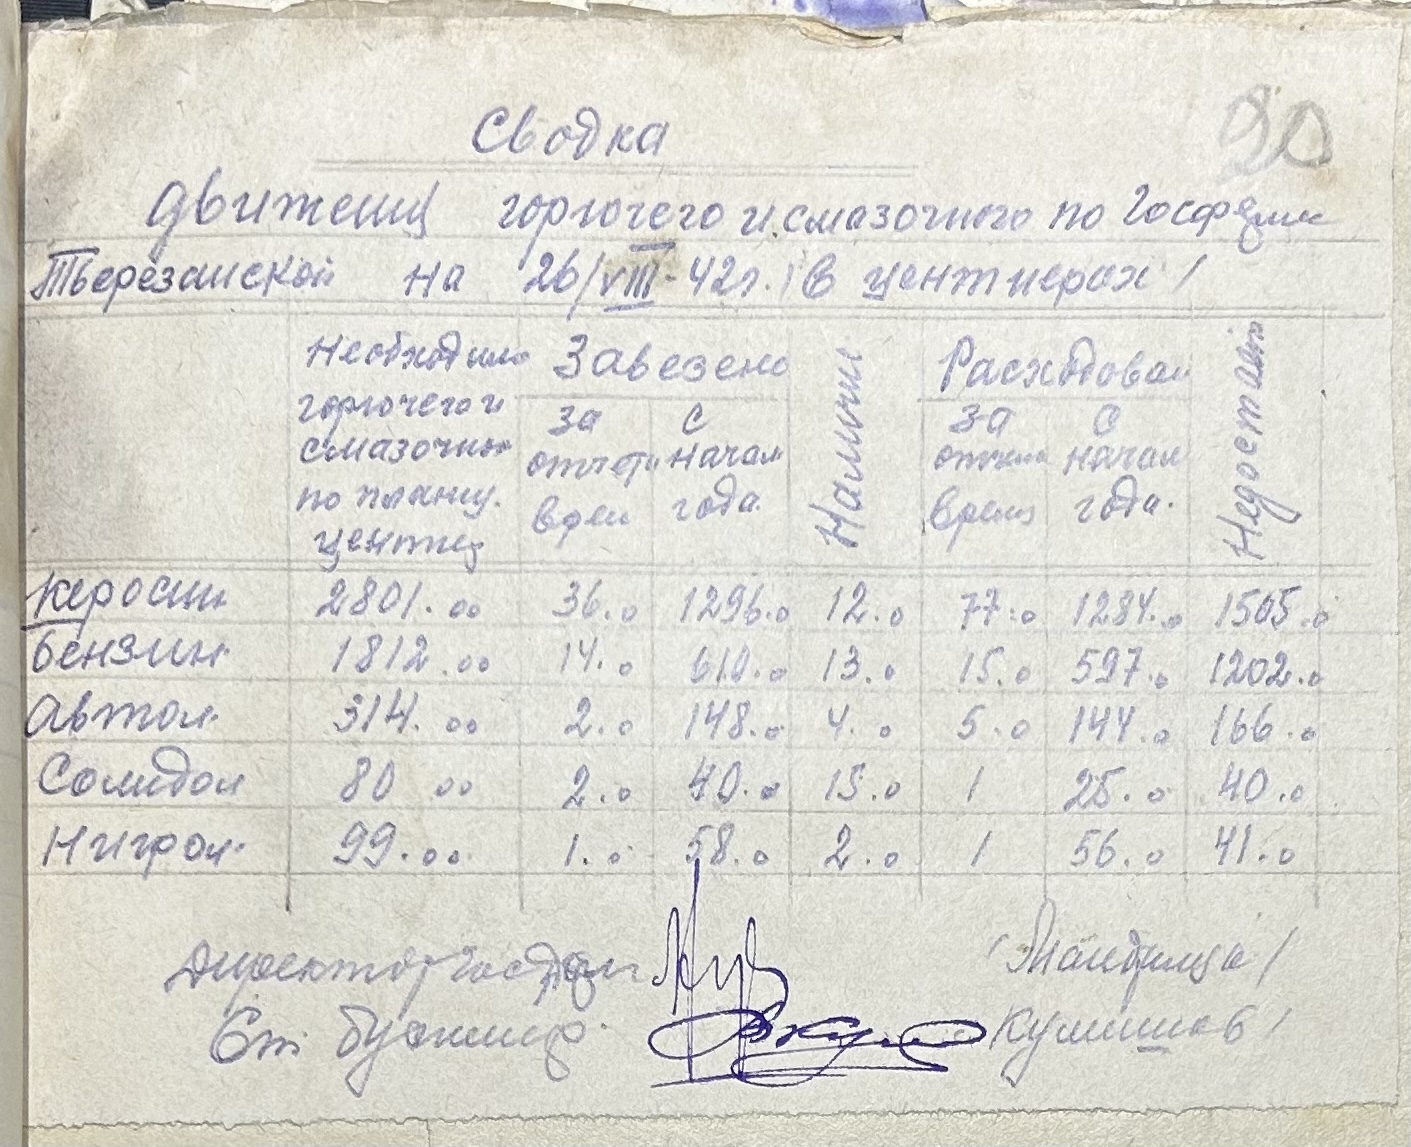 90
Сводка
движениц горючего и смазочного по Госферме
Тверезанской на 26/VIII-42г. (в центнерах)
Необходимо горючего и смазочно по плану. центнер
Завезено
Наличие
Расходован
Недостает
за отчетн врем
с начал года.
за отчетн время
с начал года.
Керосин 2801.00 36.0 1296.0 12.0 77.0 1284.0 1505.0
Бензин 1812.00 14.0 610.0 13.0 15.0 597.0 1202.0
Автол 314.00 2.0 148.0 4.0 5.0 144.0 166.0
Солидол 80 00 2.0 40.0 15.0 1 25.0 40.0
Нигрол 99.00 1.0 58.0 2.0 1 56.0 41.0
Директор Госферм
Ст. бухгалтер Кулишов